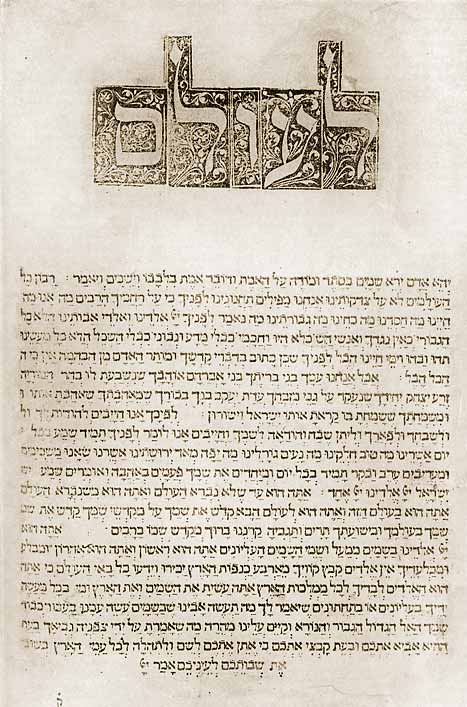 לעולם
יהא אדם ירא שמים בסתר ומודה על האמת ודובר אמת בלבבו וישכים ויאמר : רבון כל
העולמים לא על צדקותינו אנחנו מפילים תחנונינו לפניך כי על רחמיך הרבים מה אנו מה
חיינו מה חסדנו מה כחינו מה גבורתינו מה נאמר לפניך אלדינו ואלדי אבותינו הלא כל
הגבורי כאין נגדך ואנשי השם כלא היו וחכמי כבלי מדע ונבוני כבלי השכל הלא כל מעשינו
תהו ובהו וימי חיינו הבל לפניך שכן כתוב בדברי קדשך ומותר האדם מן הבהמה אין כי ה
הכל הבל : אבל אנחנו עמך בני בריתך בני אברהם אוהבך שנשבעת לו בהר המוריה
זרע יצחק יחידך שנעקד על גבי מזבחך עדת יעקב בנך בכורך שמאהבתך שאהבת אותו ו
ומשמחתך ששמחת בו קראת אותו ישראל וישורון : לפיכך אנו חייבים להודות לך ול
ולשבחך ולפארך וליתן שבח והודאה לשמך וחייבים אנו לומר לפניך תמיד שמע בכל י
יום אשרינו מה טוב חלקינו מה נעים גורלינו מה יפה מאד ירושתינו אשרנו שאנו משכימים
ומעריבים ערב ובקר תמיד בכל יום ומיחדים את שמך פעמים באהבה ואומרים שמע יש
ישראל אלדינו אחד : אתה הוא עד שלא נברא העולם ואתה הוא משנברא העולם
אתה הוא בעולם הזה ואתה הוא לעולם הבא קדש את שמך על מקדישי שמך קדש את שמ
שמך בעולמך ובישועתך תרים ותגביה קרננו ברוך מקדש שמו ברבים : אתה הוא
אלדינו בשמים ממעל ושמי השמים העליונים אתה הוא ראשון ואתה הוא אחרון
ומבלעדיך אין אלדים קבץ קוויך מארבע כנפות הארץ יכירו וידעו כל באי העולם כי אתה
הוא האדים לבדיך לכל ממלכות הארץ אתה עשית את השמים ואת הארץ ומי בכל מעשה
ידיך בעליונים או בתחתונים שיאמר לך מה תעשה אבינו שבשמים עשה עמנו בעבור כבוד
שמך האל הגדול הגבור והנורא וקיים עלינו מהרה מה שאמרת על ידי צפניה נביאך בעת
ההיא אביא אתכם ובעת קבצי אתכם כי אתן אתכם לשם ולתהלה לכל עמי הארץ בשובי
את שבותכם לעיניכם אמר